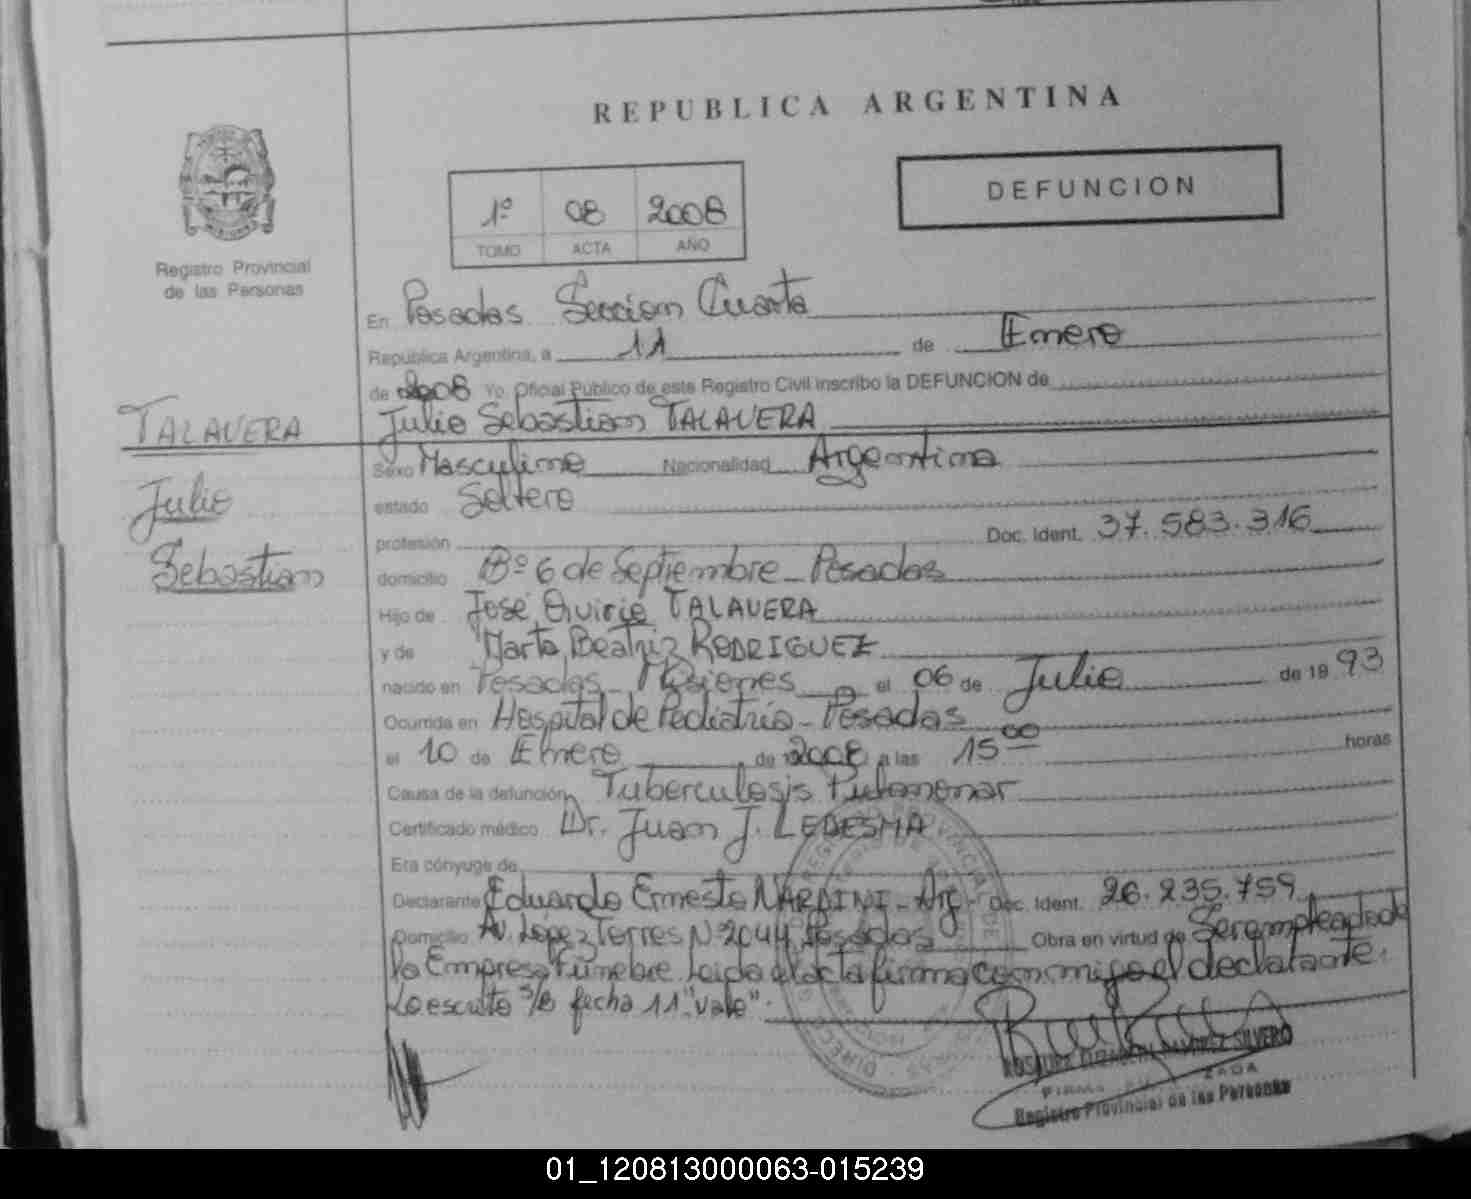 REPUBLICA ARGENTINA
DEFUNCION
1º 08 2008
TOMO ACTA AÑO
Registro Provincial
de las Personas
En Posadas Seccion Cuarta
Republica Argentina, a 11 de Enero
de 2008 Yo, Oficial Público de este Registro Civil inscribo la DEFUNCION de
TALAVERA
Julio
Sebastian
Julio Sebastian TALAVERA
Sexo Masculino Nacionalidad Argentina
estado Soltero
profesión Doc. Ident. 37.583.316
domicilio Bº 6 de Septiembre - Posadas
Hijo de José Quirio TALAVERA
y de Marta Beatriz RODRIGUEZ
nacido en Posadas Misiones el 06 de Julio de 19 93
Ocurrida en Hospital de Pediatría - Posadas
el 10 de Enero de 2008 a las 15 00 horas
Causa de la defunción Tuberculosis Pulmonar
Certificado médico Dr. Juan J. LEDESMA
Era cónyuge de
Declarante Eduardo Ernesto NARDINI - Arg - Doc. Ident. 26.235.759
Domicilio Av. Lopez Torres Nº 2044 Posadas Obra en virtud de Ser empleado de
la Empresa Fúnebre Leida el acta firma conmigo el declarante.
Lo escrito s/b fecha 11 "Vale".
SILVERO
Registro Provincial de las Personas
01_120813000063-015239